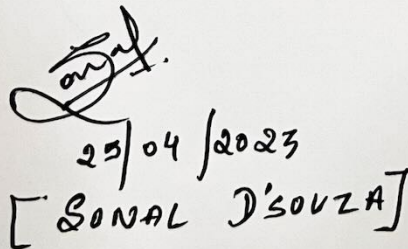 Sonal
25/04/2023
[ SONAL D'SOUZA ]